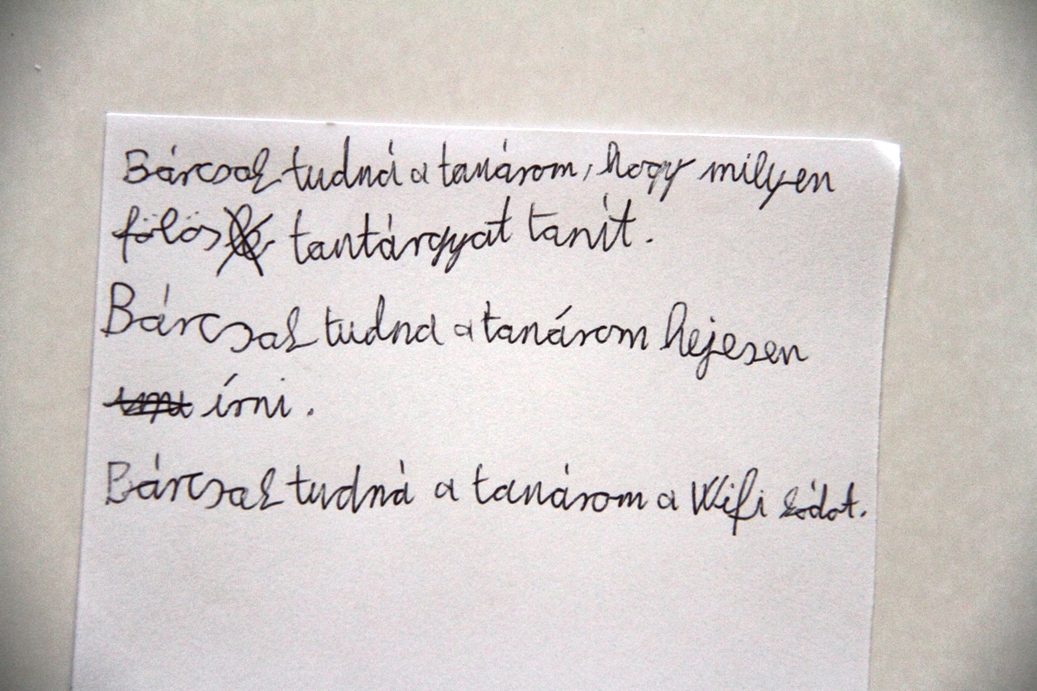 Bárcsak tudná a tanárom, hogy milyen
fölös tantárgyat tanít.
Bárcsak tudna a tanárom hejesen
írni.
Bárcsak tudná a tanárom a Wifi kódot.